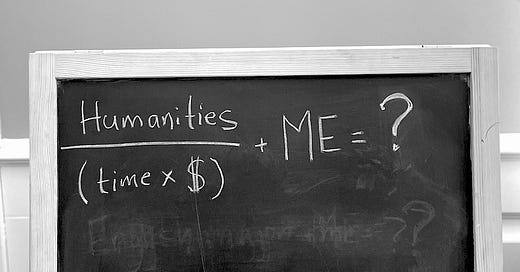 Humanities
(time x $) + ME = ?
ME = ??